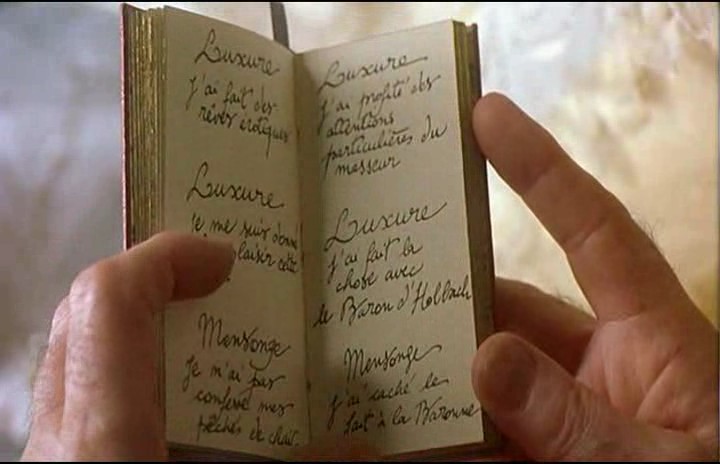 Luxure
J'ai fait des
rêves érotiques
Luxure
je me suis donné
plaisir cette
Mensonge
Je n'ai pas
confessé mes
péchés de chair.
Luxure
J'ai profité des
attentions
particulières du
masseur
Luxure
J'ai fait la
chose avec
le Baron d'Holbach
Mensonge
J'ai caché le
fait à la Baronne